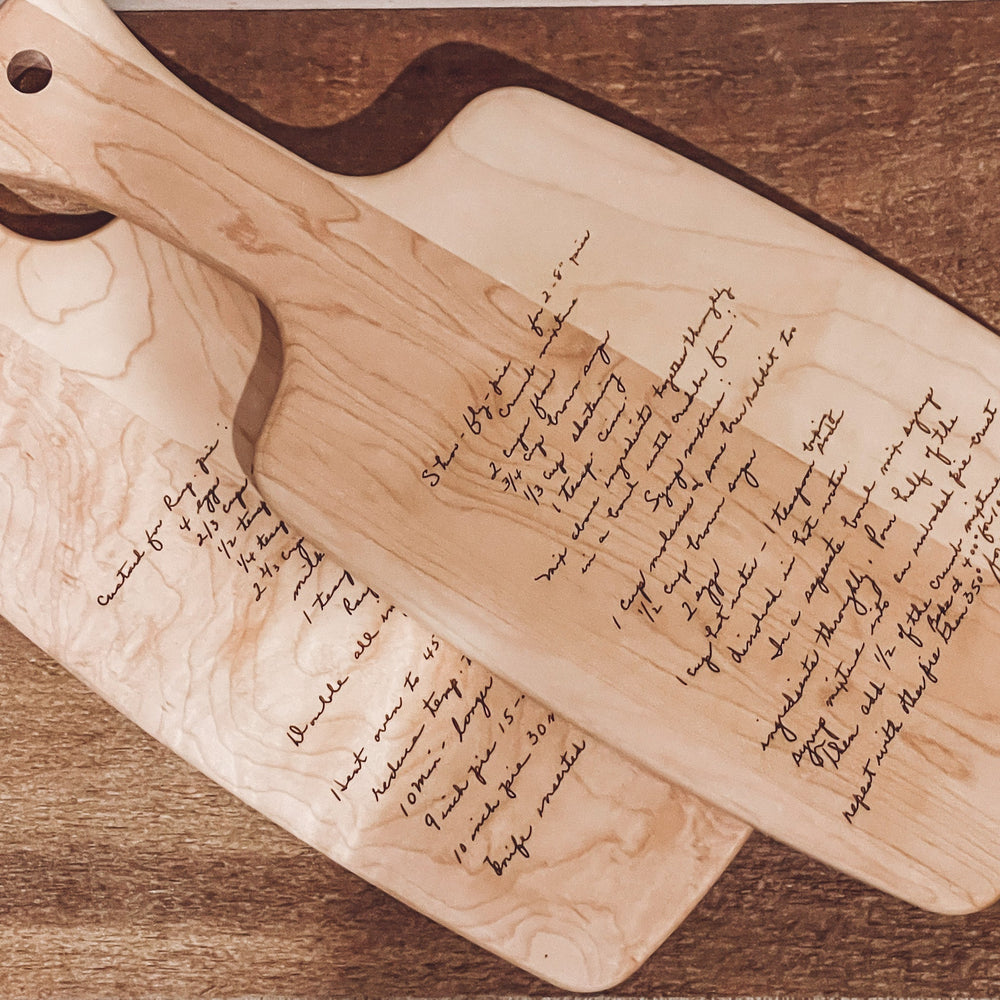 Custard for Rasp. pie:
4 eggs
2/3 cup
1/2 teasp
1/4 teasp
2 2/3 cup
milk
1 teasp
Rasp
Double all in
Heat oven to 45
reduce temp:
10 min - longer
9 inch pie 15-
10 inch pie 30 m
knife inserted
Shoo-fly-pie for 2-8" pies
Crumb mixture
2 cups flour
3/4 cup brown sugar
1/3 cup shortening
1 teasp. cinn:
mix above ingredients together thoroughly
in a bowl until crumbs form:
Syrup mixture:
1 cup molasses & some brer rabbit to
1/2 cup brown sugar
2 eggs
1 cup hot water - 1 teaspoon baking soda
dissolved in hot water.
In a separate bowl mix syrup
ingredients thoroughly, Pour half of the
syrup mixture into an unbaked pie crust
Then add 1/2 of the crumb mixture
Bake at 400° for
repeat with other pie then 350° for